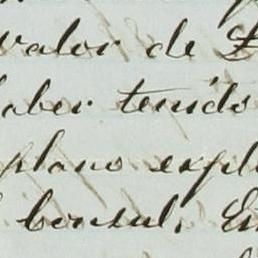 valor de £
haber tenido
plano expl
consul. En